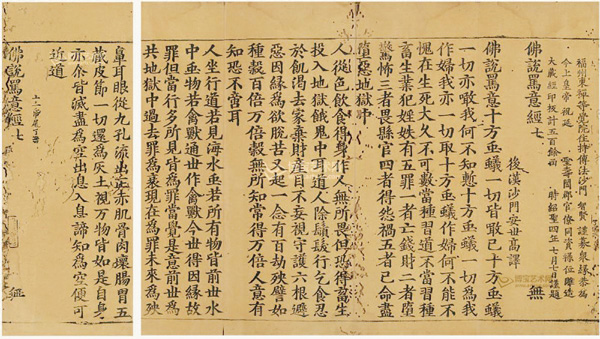 福州東禪等覺院住持傳法沙門 智賢 謹募衆緣恭為
今上皇帝祝延 聖壽闔郡官僚同資祿位雕造
大藏經印板計五百餘函 時紹聖四年七月七日謹題
佛說罵意經 七 無
後漢沙門安世高譯
佛說罵意十方蟲蟻一切皆噉已十方蟲蟻
一切亦噉我何不知慙十方蟲蟻一切為我
作婦我亦一切取十方蟲蟻作婦何不能不
愧在生死大久不可數當種習道不當習種
畜生業犯婬妷有五罪一者亡錢財二者
驚怖三者畏縣官四者得怨禍五者已命盡
墮惡地獄中
人從色飲食得身作人無所畏但恐得畜生
投入地獄餓鬼中耳道人除鬚髮行乞食忍
於飢渴去家棄財産目不妄視守護六根避
惡因緣為欲脫苦又起一念有百劫殃譬如
種穀百倍万倍穀無所知常得万倍人意有
知恐不啻耳
人坐行道若見海水蟲若所有物皆前世水
中蟲物若禽獸通世作禽獸今世得因緣故
罪但當行多所見皆為罪當覺是意前世為
共地獄中過去罪為衰現在為罪未來為殃
皐耳眼從九孔流出赤肌骨肉壞腸胃五
藏皮筋一切還為灰土視万物皆如是自身
亦尒皆滅盡為空出息入息諦知為空便可
近道
佛說罵意經 七 無